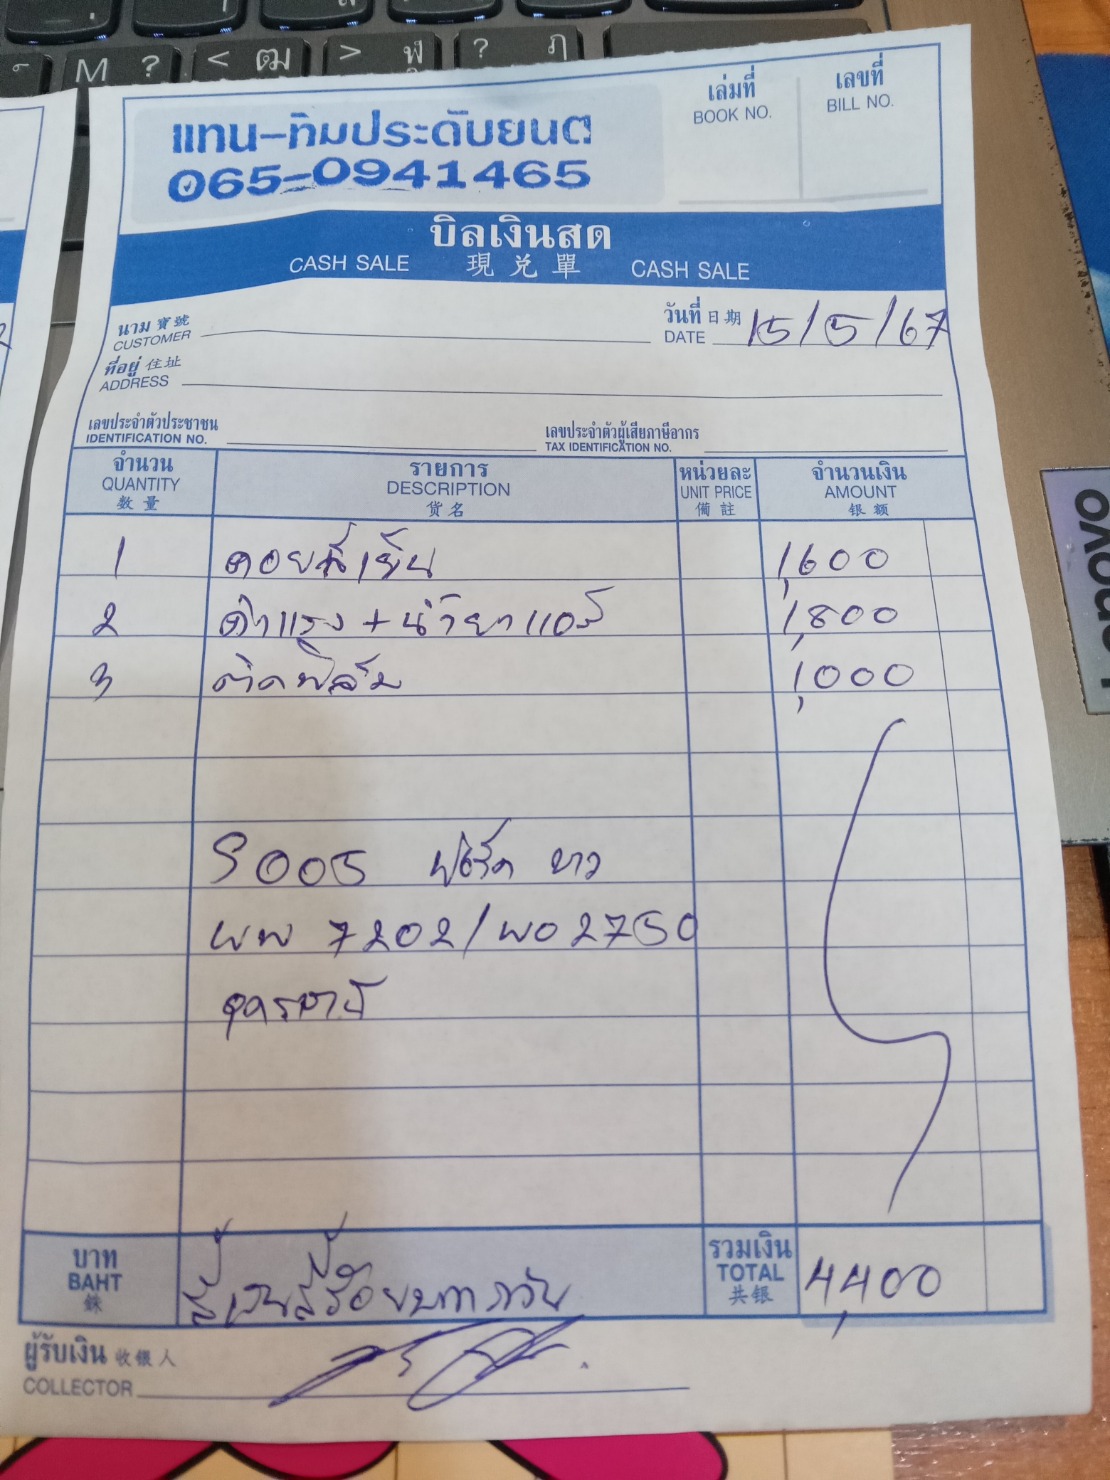 M ? < ฒ > ฬ ? ฦ
แทน-ทิมประดับยนต์
065-0941465
เล่มที่
BOOK NO.
เลขที่
BILL NO.
บิลเงินสด
CASH SALE 現兑單 CASH SALE
นาม 寶號
CUSTOMER
วันที่ 日期
DATE 15/5/67
ที่อยู่ 住址
ADDRESS
เลขประจำตัวประชาชน
IDENTIFICATION NO.
เลขประจำตัวผู้เสียภาษีอากร
TAX IDENTIFICATION NO.
จำนวน รายการ หน่วยละ จำนวนเงิน
QUANTITY DESCRIPTION UNIT PRICE AMOUNT
数量 货名 備註 银额
1 คอยล์เย็น 1,600
2 ค่าแรง+น้ำยาแอร์ 1,800
3 ติดฟิล์ม 1,000
S005 ฟอร์ด ขาว
7202/ 2750
อุดรธานี
บาท
BAHT
銖
สี่พันสี่ร้อยบาทถ้วน
รวมเงิน
TOTAL
共银
4,400
ผู้รับเงิน 收银人
COLLECTOR
Lenovo